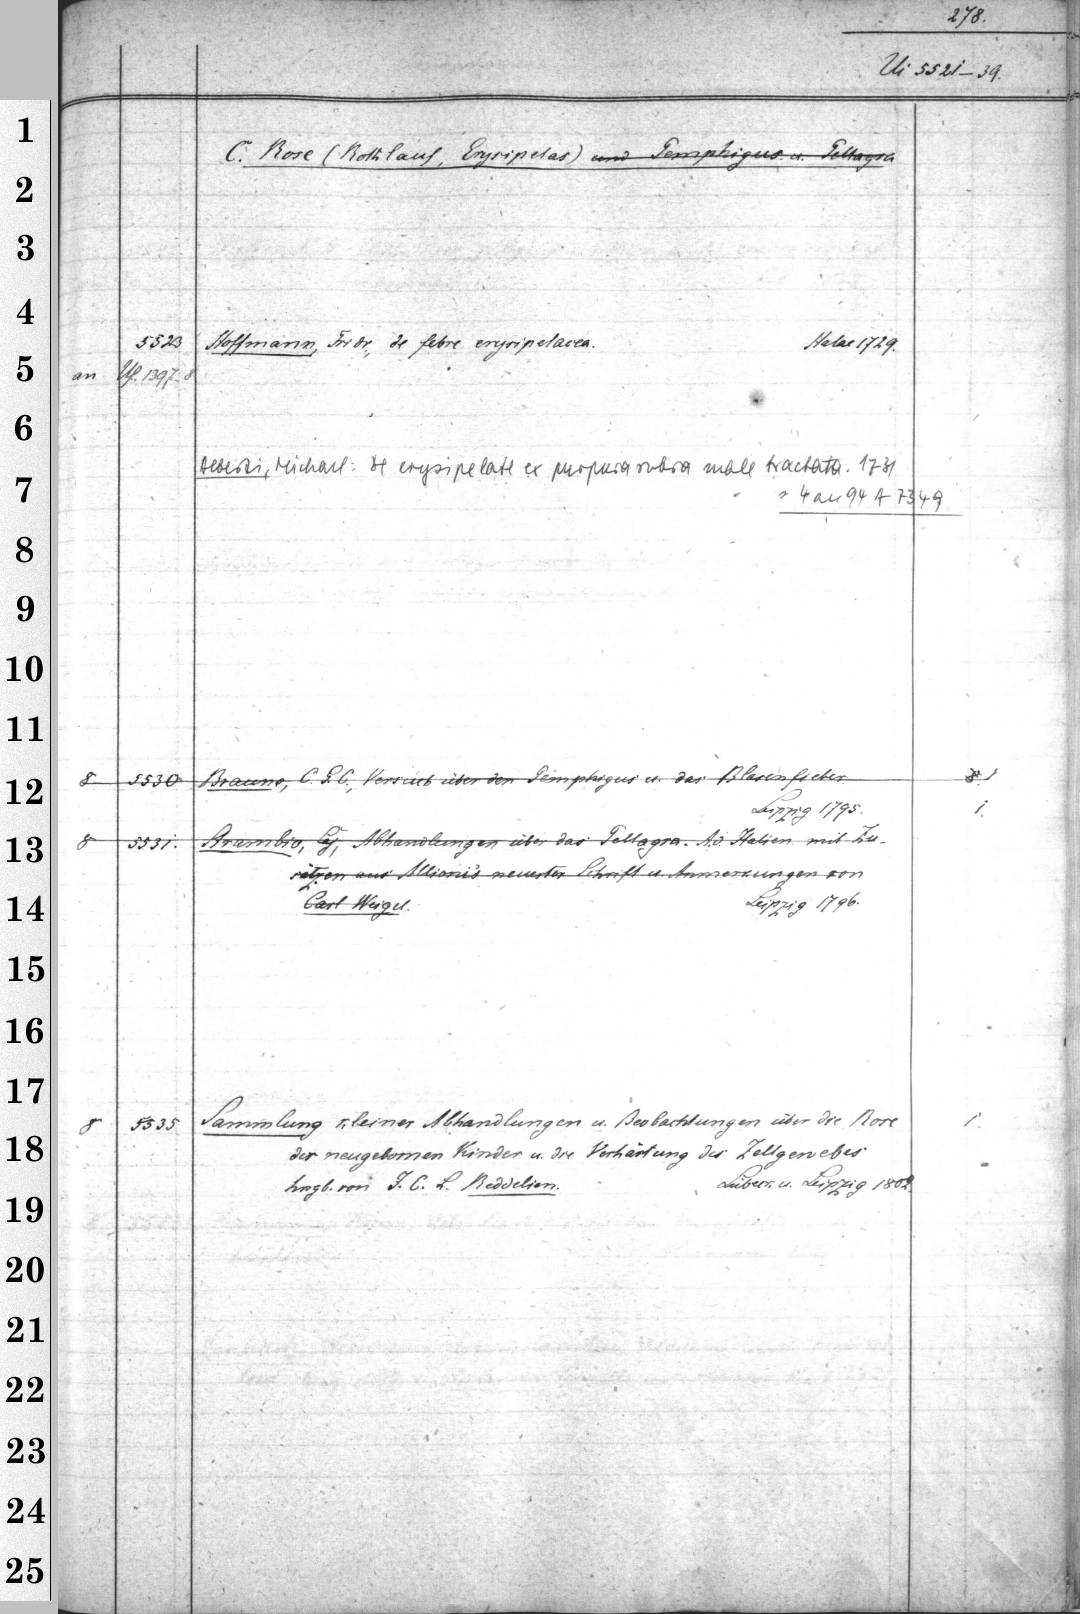 278.
Ui 5521-39.
1
C. Rose (Rothlauf, Erysipelas) und Pemphigus u. Pellagra
2
3
4
5523 Hoffmann, Frdr., de febre erysipelacea. Halae 1729.
5
an Uf. 1397. 8
6
Alberti, Michael: de erysipelate ex purpura rubra male tractata. 1731
7
4 an 94 A 7349
8
9
10
11
8 5530 Brauns, C. G. C., Versuch über den Pemphigus u. das Blasenfieber 1
12
Leipzig 1795. 1.
13
8 5531. Strambio, Caj., Abhandlungen über das Pellagra. A. d. Italien. mit Zu-
sätzen aus Allioni's neuester Schrift u. Anmerkungen von
14
Carl Weigel. Leipzig 1796.
15
16
17
8 5535 Sammlung kleiner Abhandlungen u. Beobachtungen über die Rose 1.
18
der neugebornen Kinder u. die Verhärtung des Zellgewebes
hrgb. von J. C. L. Reddelien. Lübeck u. Leipzig 1802.
19
20
21
22
23
24
25